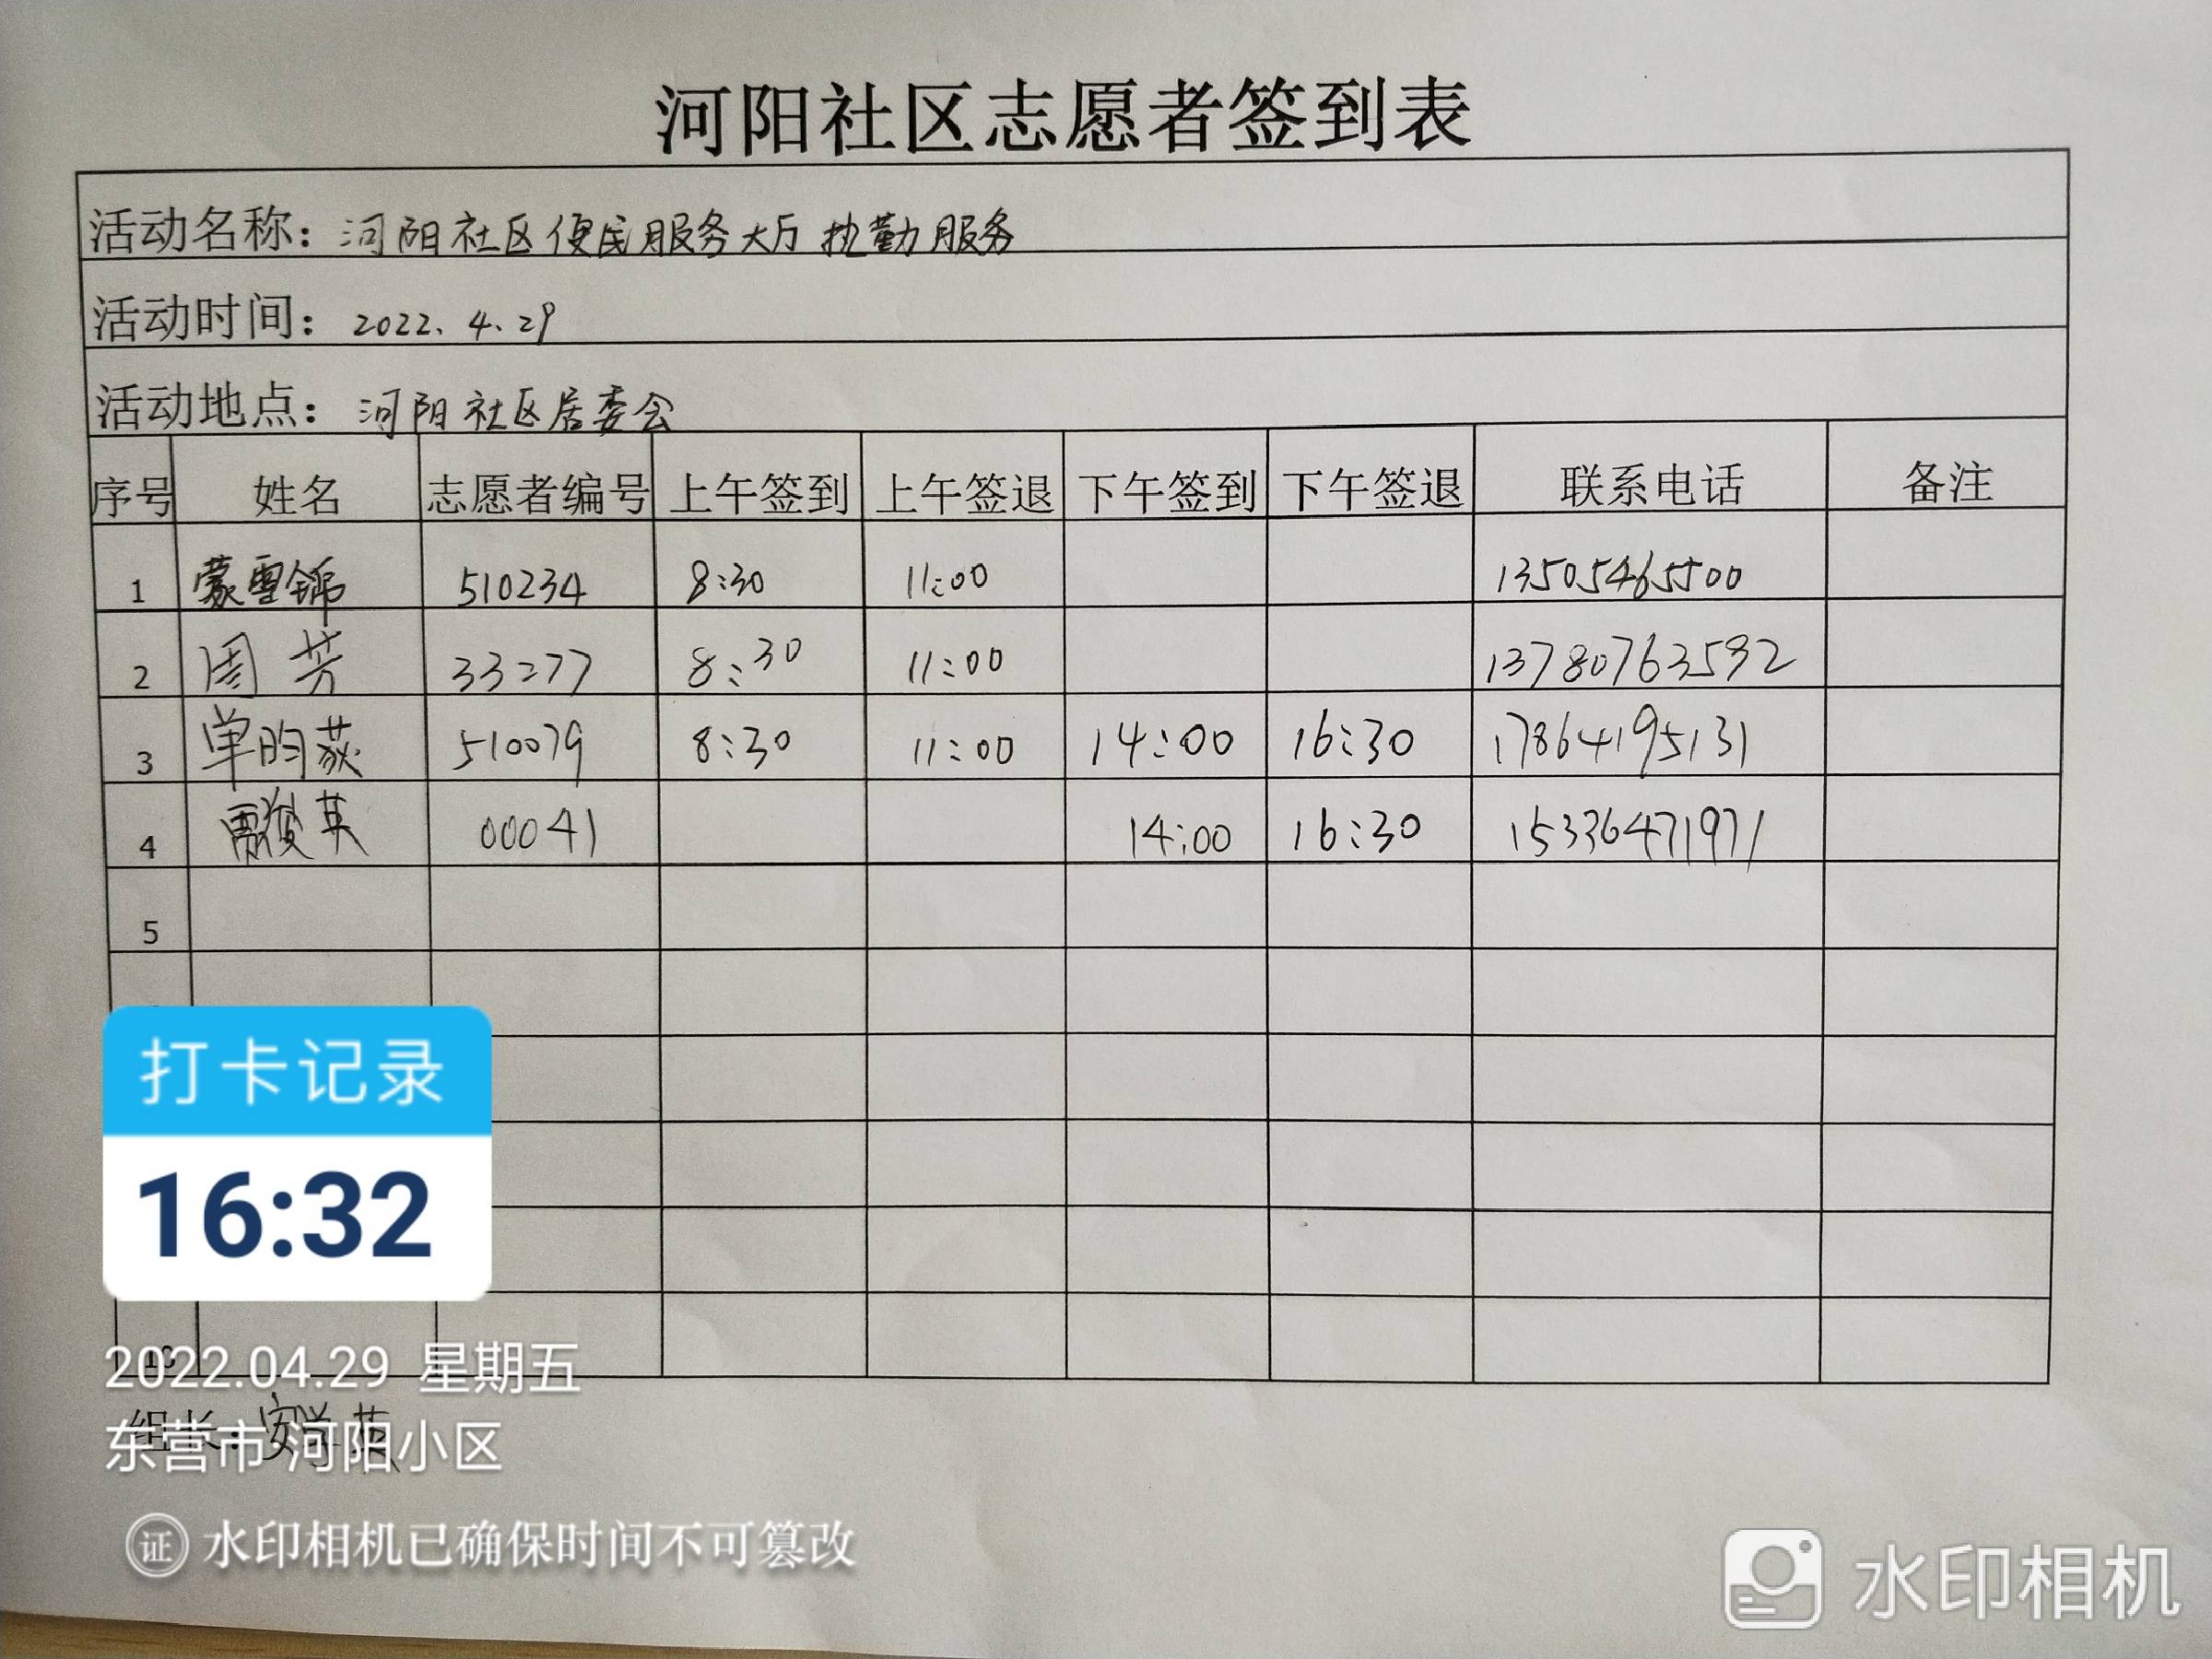 河阳社区志愿者签到表
活动名称：河阳社区便民服务大厅执勤服务
活动时间：2022.4.29
活动地点：河阳社区居委会
序号 姓名 志愿者编号 上午签到 上午签退 下午签到 下午签退 联系电话 备注
1 蒙雪锦 510234 8:30 11:00 13505465500
2 周芳 33277 8:30 11:00 13780763592
3 单昀荻 510079 8:30 11:00 14:00 16:30 17864195131
4 英 00041 14:00 16:30 15336471971
5
打卡记录
16:32
10
2022.04.29 星期五
组长：安学英
东营市·河阳小区
证 水印相机已确保时间不可篡改
水印相机